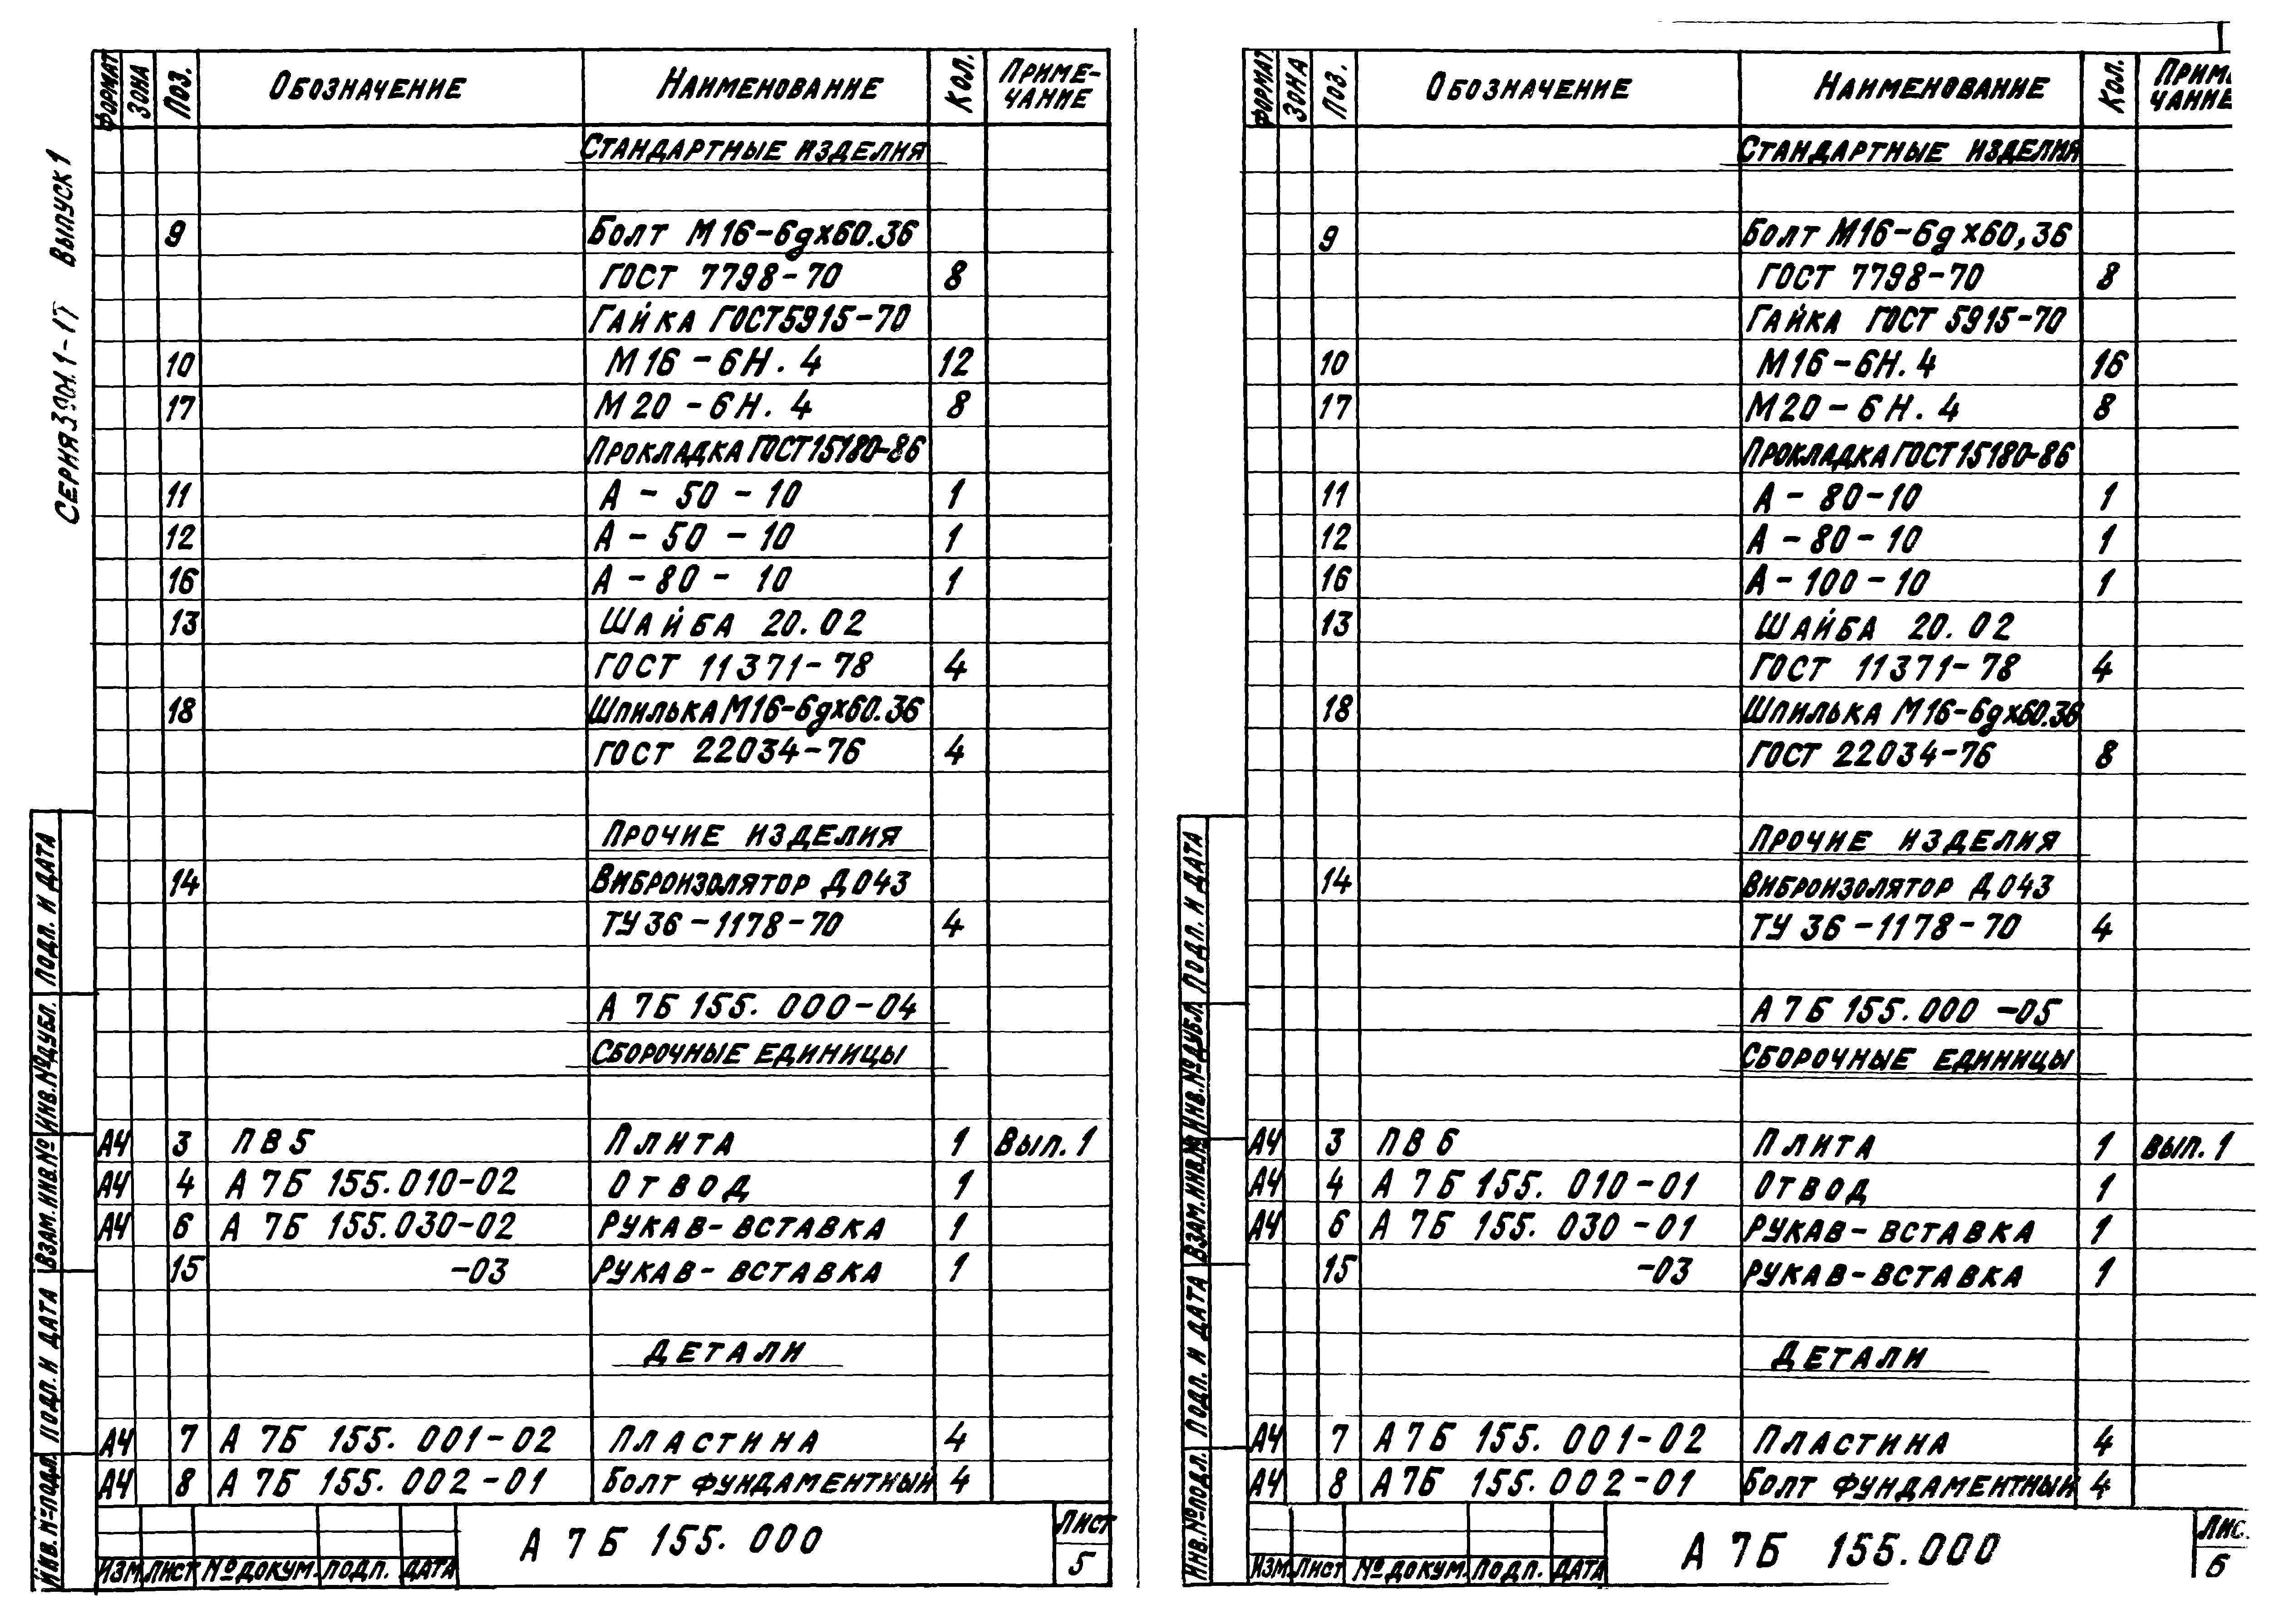 Серия 3.901.1-17 Выпуск 1
Формат Зона Поз. Обозначение Наименование Кол. Приме-
чание
Стандартные изделия
9 Болт М16-6gх60.36
ГОСТ 7798-70 8
Гайка ГОСТ 5915-70
10 М16-6Н.4 12
17 М20-6Н.4 8
Прокладка ГОСТ 15180-86
11 А-50-10 1
12 А-50-10 1
16 А-80-10 1
13 Шайба 20.02
ГОСТ 11371-78 4
18 Шпилька М16-6gх60.36
ГОСТ 22034-76 4
Прочие изделия
14 Виброизолятор Д043
ТУ 36-1178-70 4
А 7Б 155.000-04
Сборочные единицы
А4 3 ПВ 5 Плита 1 Вып. 1
А4 4 А 7Б 155.010-02 Отвод 1
А4 6 А 7Б 155.030-02 Рукав-вставка 1
15 -03 Рукав-вставка 1
Детали
А4 7 А 7Б 155.001-02 Пластина 4
А4 8 А 7Б 155.002-01 Болт фундаментный 4
Изм. Лист № докум. Подп. Дата
А 7Б 155.000
Лист
5
Инв. № подл. Подп. и дата Взам. инв. № Инв. № дубл. Подп. и дата
Формат Зона Поз. Обозначение Наименование Кол. Приме
чание
Стандартные изделия
9 Болт М16-6gх60,36
ГОСТ 7798-70 8
Гайка ГОСТ 5915-70
10 М16-6Н.4 16
17 М20-6Н.4 8
Прокладка ГОСТ 15180-86
11 А-80-10 1
12 А-80-10 1
16 А-100-10 1
13 Шайба 20.02
ГОСТ 11371-78 4
18 Шпилька М16-6gх60.36
ГОСТ 22034-76 8
Прочие изделия
14 Виброизолятор Д043
ТУ 36-1178-70 4
А 7Б 155.000-05
Сборочные единицы
А4 3 ПВ 6 Плита 1 Вып. 1
А4 4 А 7Б 155.010-01 Отвод 1
А4 6 А 7Б 155.030-01 Рукав-вставка 1
15 -03 Рукав-вставка 1
Детали
А4 7 А 7Б 155.001-02 Пластина 4
А4 8 А 7Б 155.002-01 Болт фундаментный 4
Изм. Лист № докум. Подп. Дата
А 7Б 155.000
Лис.
6
Инв. № подл. Подп. и дата Взам. инв. № Инв. № дубл. Подп. и дата